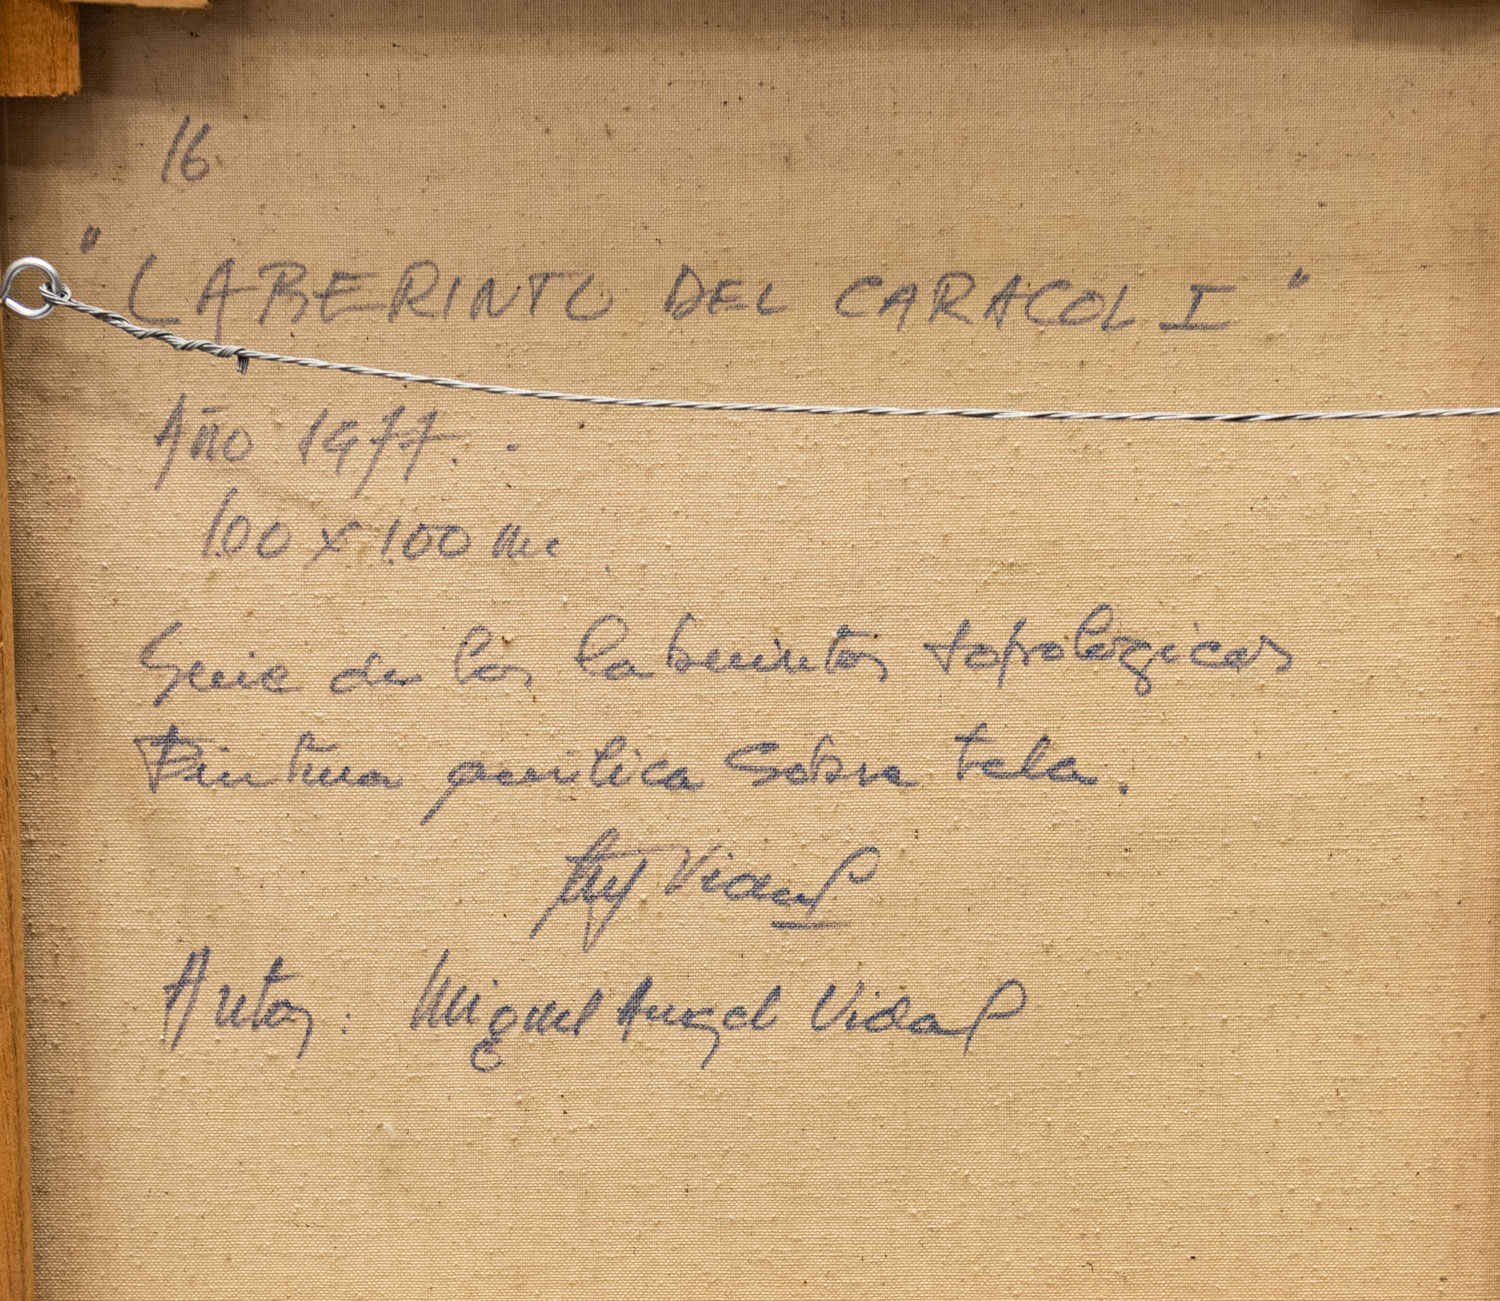 16
"LABERINTO DEL CARACOL I"
Año 1977.
100 x 100
Serie de los laberintos topologicos
Pintura acrilica sobre tela.
Vidal
Autor: Miguel Angel Vidal